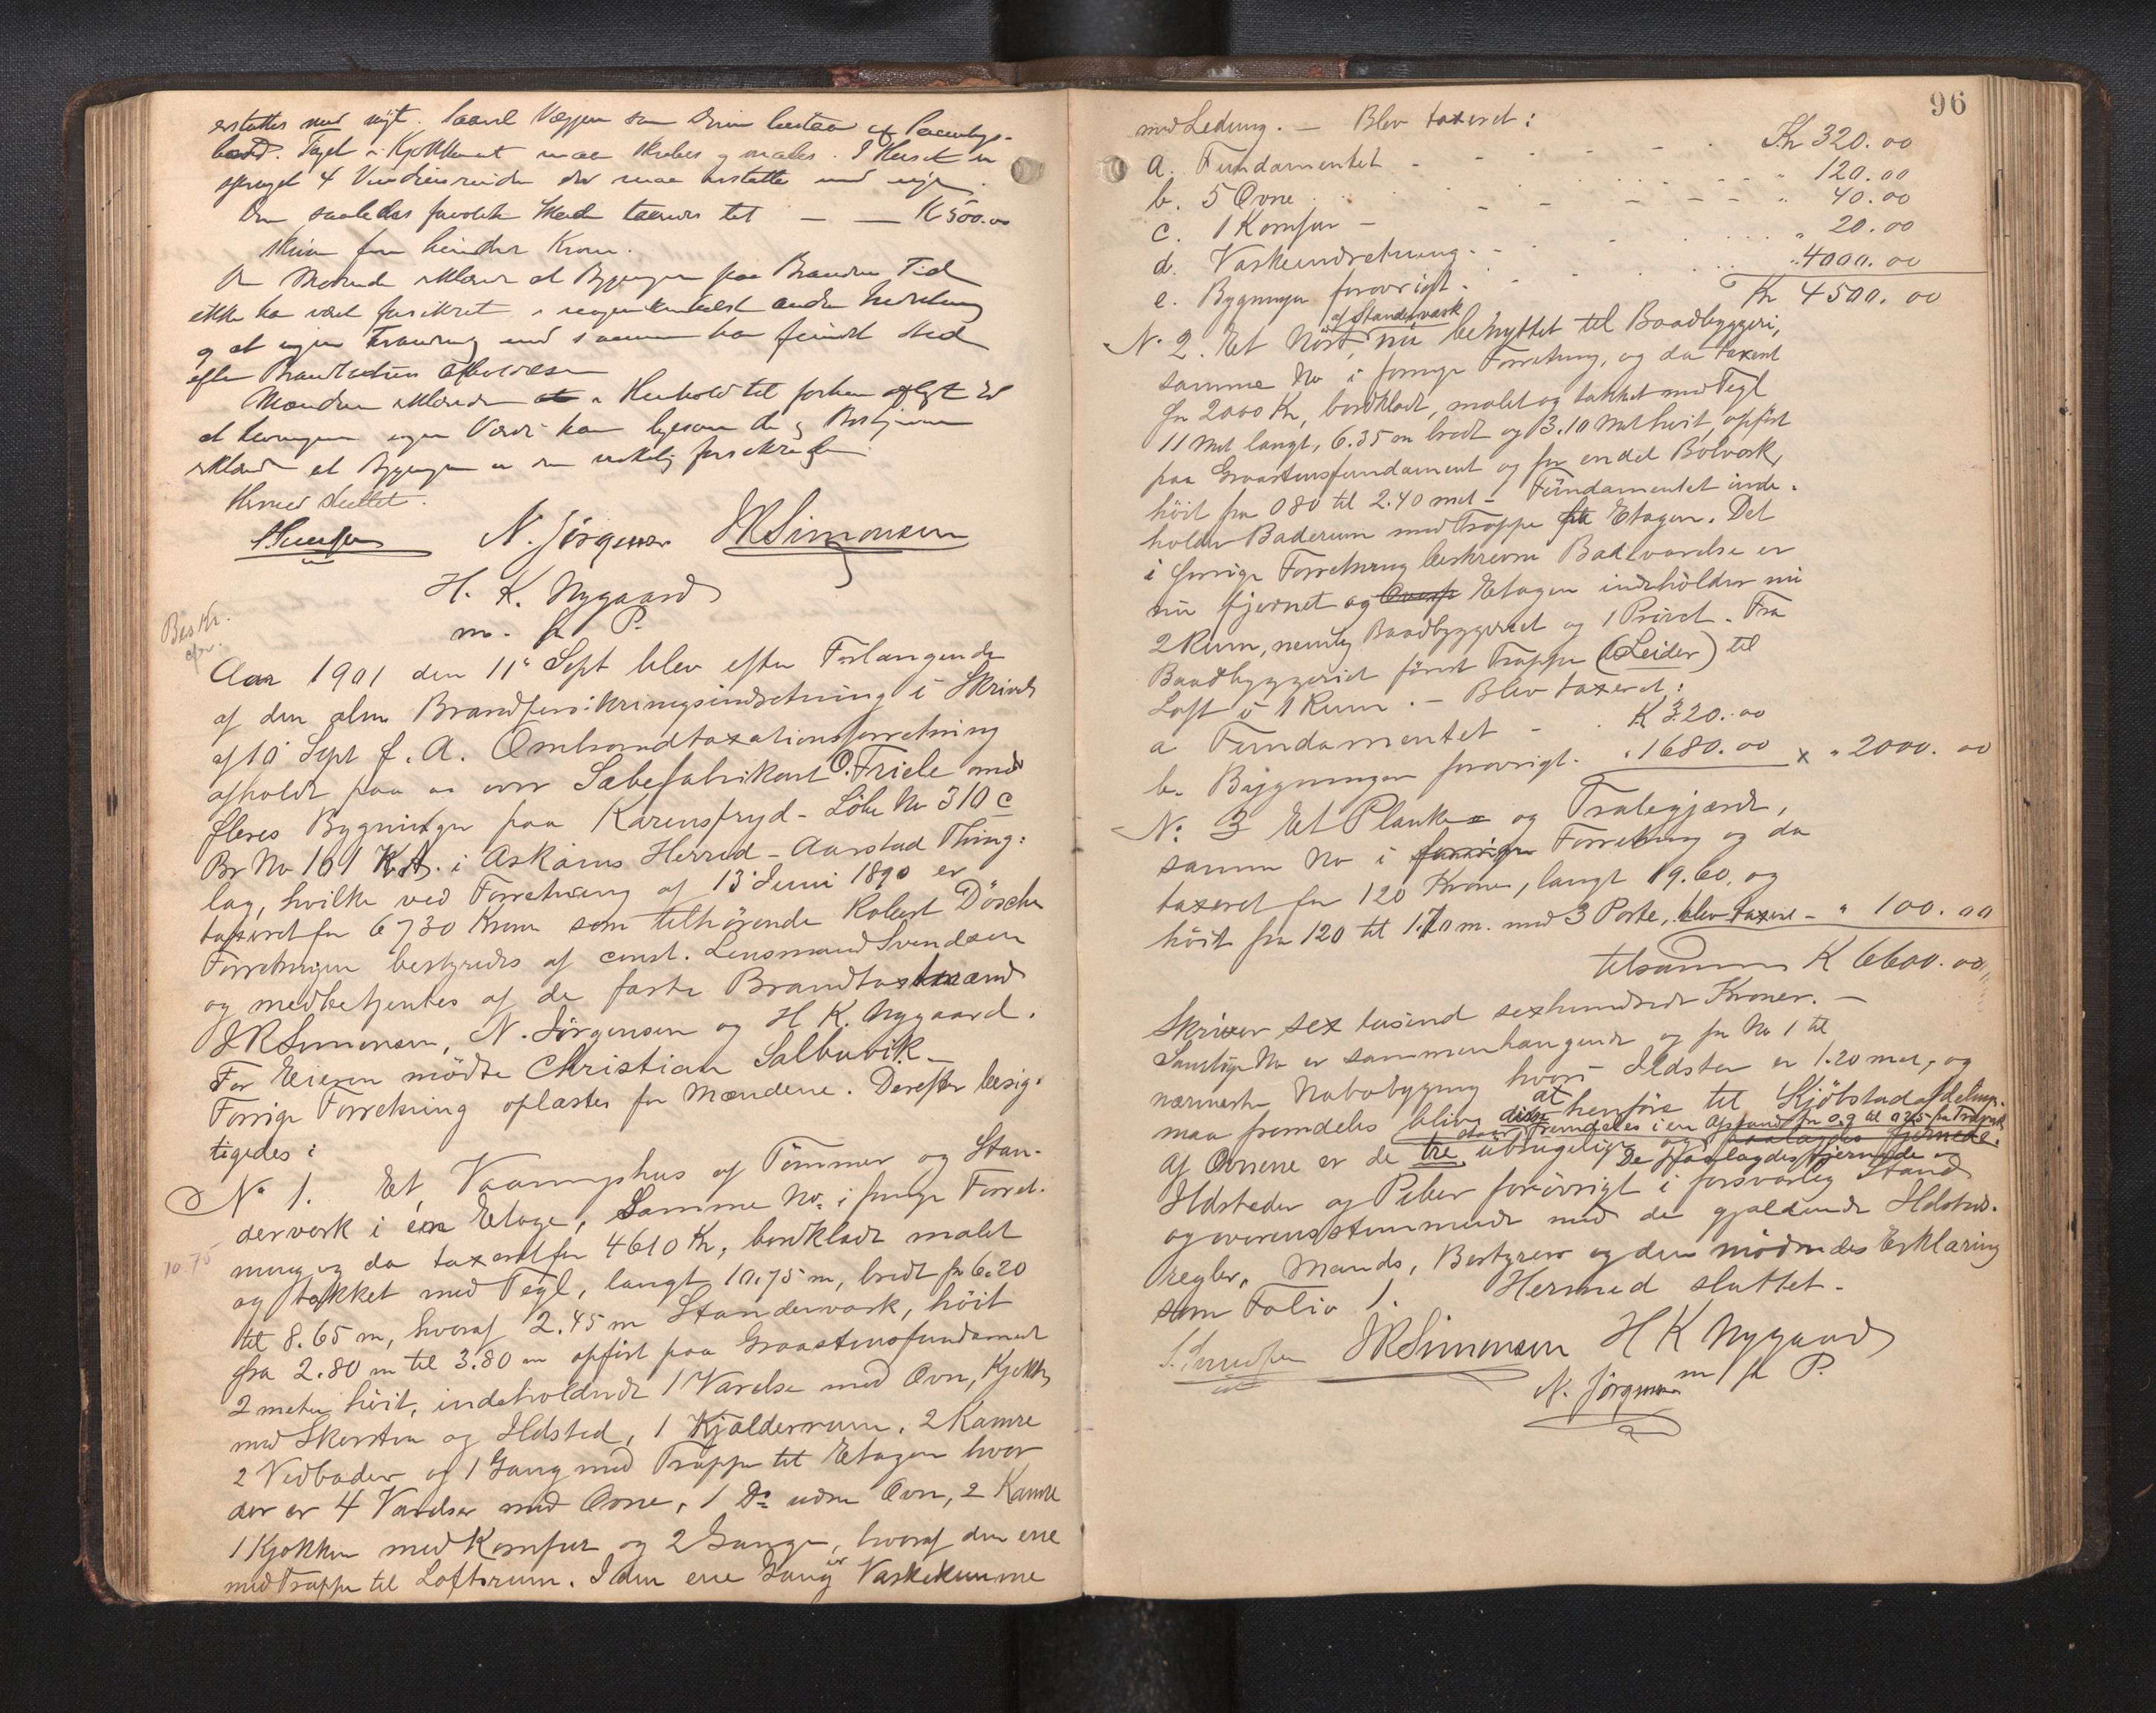 erstattes med nyt. Saavel Væggen som
bord. Taget i Kjøkkenet maa skrabes og males. I Huset er
sprunget 4 Vinduesruder der maa erstattes med nye.
Den saaledes forvoldte Skade taxeres til — — K 500.00
skriver fem hundrede Kroner.
De Mødende erklærede at Bygningen paa Brandens Tid
ikke har været forsikret i nogensomhelst anden Indretning
og at ingen Forandring med samme har fundet Sted
efter Brandtaxtens Afholdelse
Mændene erklærede at i Henhold til
at ingen ligesom de og Bestyreren
erklærede at Bygningen er
Hermed sluttet.
N. Jörgensen JRSimonsen
H. K. Nygaard
m. f. P.
Beskr.
Aar 1901 den 11te Sept blev efter Forlangende
af den alm. Brandforsikringsindretning i Skrivelse
af 10 Sept f. A. Ombrandtaxationsforretning
afholdt paa Sæbefabrikant O. Friele
fleres Bygninger paa Karensfryd - Löbe No 310 c
Br No 161 i Askøens Herred - Aarstad Thing-
lag, hvilke ved Forretning af 13 Juni 1890 er
taxeret for 6730 Kroner som tilhörende Robert Döscher
Forretningen bestyredes af const. Lensmand Svendsen
og medbetjentes af de faste Brandtaxtmænd
JRSimonsen, N. Jörgensen og H K. Nygaard.
For Eieren mödte Christian Salbuvik.
Forrige Forretning oplæstes for Mændene. Derefter besig-
tigedes:
No 1. Et Vaaningshus af Tömmer og Stan-
derverk i én Etage, Samme No i forrige Forret-
ning og da taxeret for 4610 Kr, bordklædt malet
10.75
og tækket med Tegl, langt 10.75 m, bredt fr 6.20
til 8.65 m, hvoraf 2.45 m Standerværk, höit
fra 2.80 m til 3.80 m opfört paa Graastensfundament
2 meter höit, indeholdende 1 Værelse med Ovn, Kjökken
med Skorsten og Ildsted, 1 Kjælderrum, 2 Kamre
2 Vedboder og 1 Gang med Trappe til Etagen hvor
der er 4 Værelser med Ovne, 1 Do uden Ovn, 2 Kamre
1 Kjøkken med Komfur og 2 Gange, hvoraf den ene
med Trappe til Loftsrum. I den ene Gang er Vaskekumme
96
med Ledning. — Blev taxeret:
a. Fundamentet - - - - - Kr 320.00
b. 5 Ovne - - - - - " 120.00
c. 1 Komfur - - - - - " 40.00
d. Vaskeindretning - - - - " 20.00
e. Bygningen forövrigt - - - " 4000.00
Kr 4500.00
af Standerværk
No 2. Et Nöst, nu benyttet til Baadbyggeri,
samme No i forrige Forretning, og da taxeret
for 2000 Kr, bordklædt, malet og tækket med Tegl
11 Met langt, 6.35 m bredt og 3.10 Met höit, opfört
paa Graastensfundament og for endel Bolværk,
höit fra 080 til 2.40 met - Fundamentet inde-
holder Baderum med Trappe til Etagen. Det
i forrige Forretning beskrevne Badeværelse er
nu fjernet og Etagen indeholder nu
2 Rum, nemlig Baadbyggeriet og 1 Privet. Fra
Baadbyggeriet förer Trappe (Leider) til
Loft i 1 Rum. — Blev taxeret:
a Fundamentet - . K 320.00
b. Bygningen forövrigt. " 1680.00 x " 2000.00
No 3 Et Planke og Tralegjærde,
samme No i forrige Forretning og da
taxeret for 120 Kroner, langt 19.60, og
höit fra 120 til 1.70 m. med 3 Porte, blev taxeret - " 100.00
tilsammen K 6600.00
Skriver sex tusind sexhundrede Kroner. —
Samtlige No er sammenhængende og fra No 1 til
nærmeste Nabobygning hvori Ildsted er 1.20 met, og
maa fremdeles blive at henföre til Kjöbstadafdelingen.
disse staar fremdeles i en Afstand fra 0.9 til 0.25 fra Træværk
Af Ovnene er de tre ubrugelige og paalagdes fjernede.
De paalagdes fjernede og
Ildsteder og Piber forövrigt i forsvarlig Stand
og overensstemmende med de gjældende Ildsteds-
regler. Mænds, Bestyrers og den mödendes Erklæring
som Folio 1. Hermed sluttet.
JRSimonsen H K Nygaard
m f P.
N. Jörgensen